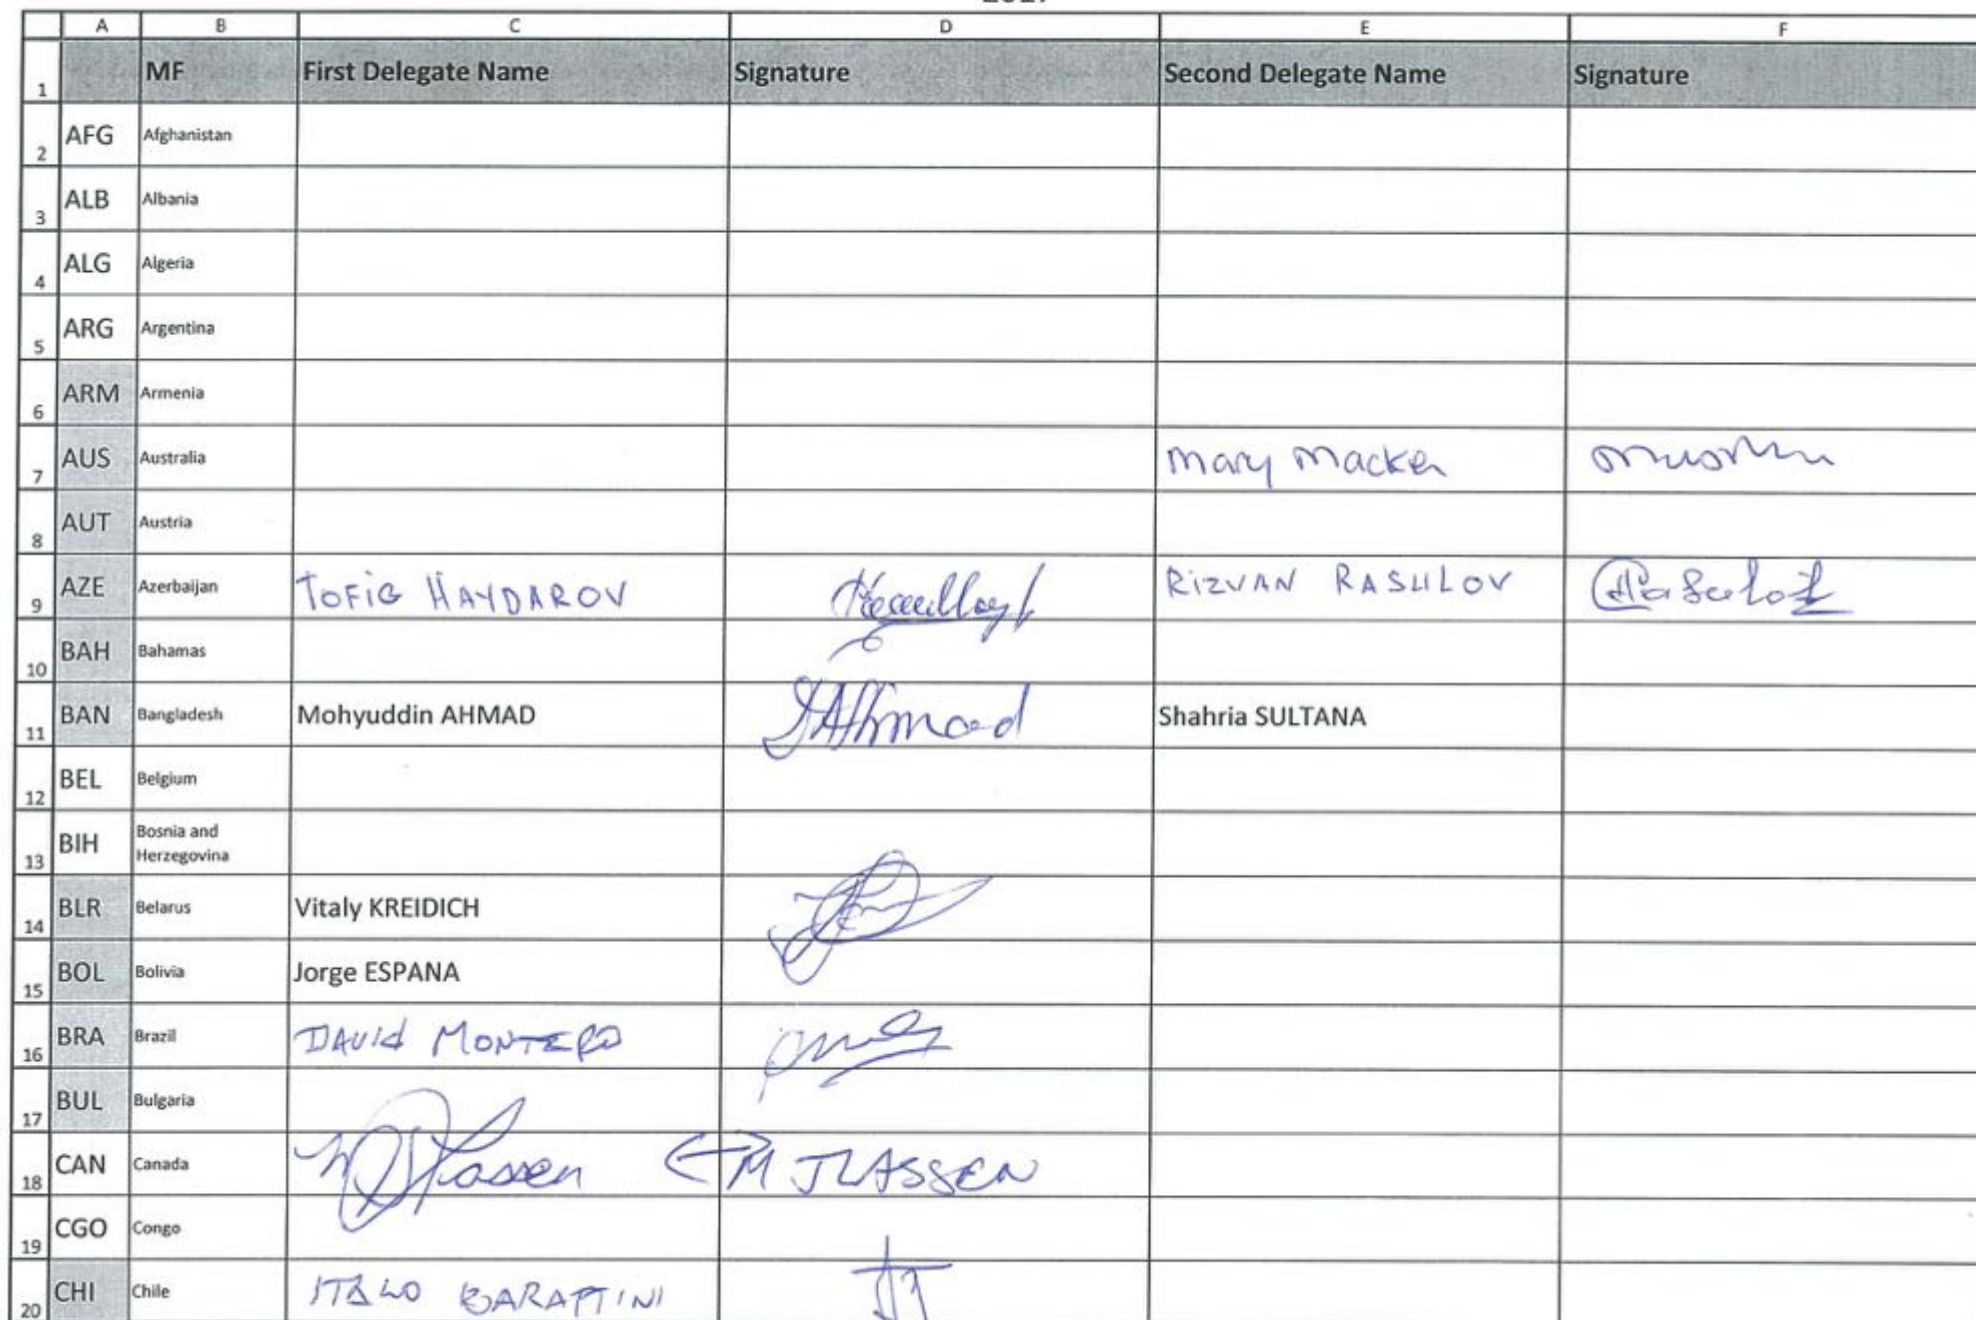 A B C D E F
1 MF First Delegate Name Signature Second Delegate Name Signature
2 AFG Afghanistan
3 ALB Albania
4 ALG Algeria
5 ARG Argentina
6 ARM Armenia
7 AUS Australia Mary Macken
8 AUT Austria
9 AZE Azerbaijan TOFIG HAYDAROV RIZVAN RASULOV
10 BAH Bahamas
11 BAN Bangladesh Mohyuddin AHMAD Ahmad Shahria SULTANA
12 BEL Belgium
13 BIH Bosnia and
Herzegovina
14 BLR Belarus Vitaly KREIDICH
15 BOL Bolivia Jorge ESPANA
16 BRA Brazil DAVID MONTERO
17 BUL Bulgaria
18 CAN Canada M JLASSEN
19 CGO Congo
20 CHI Chile ITALO